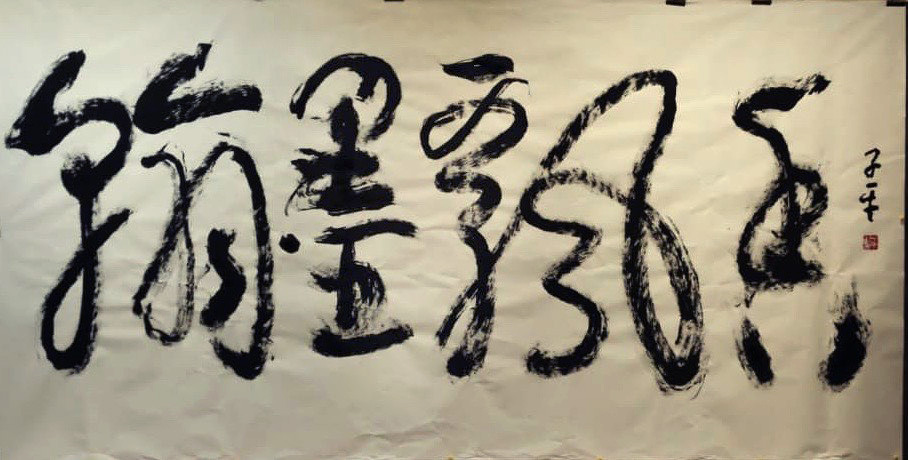 翰墨飘香
子平